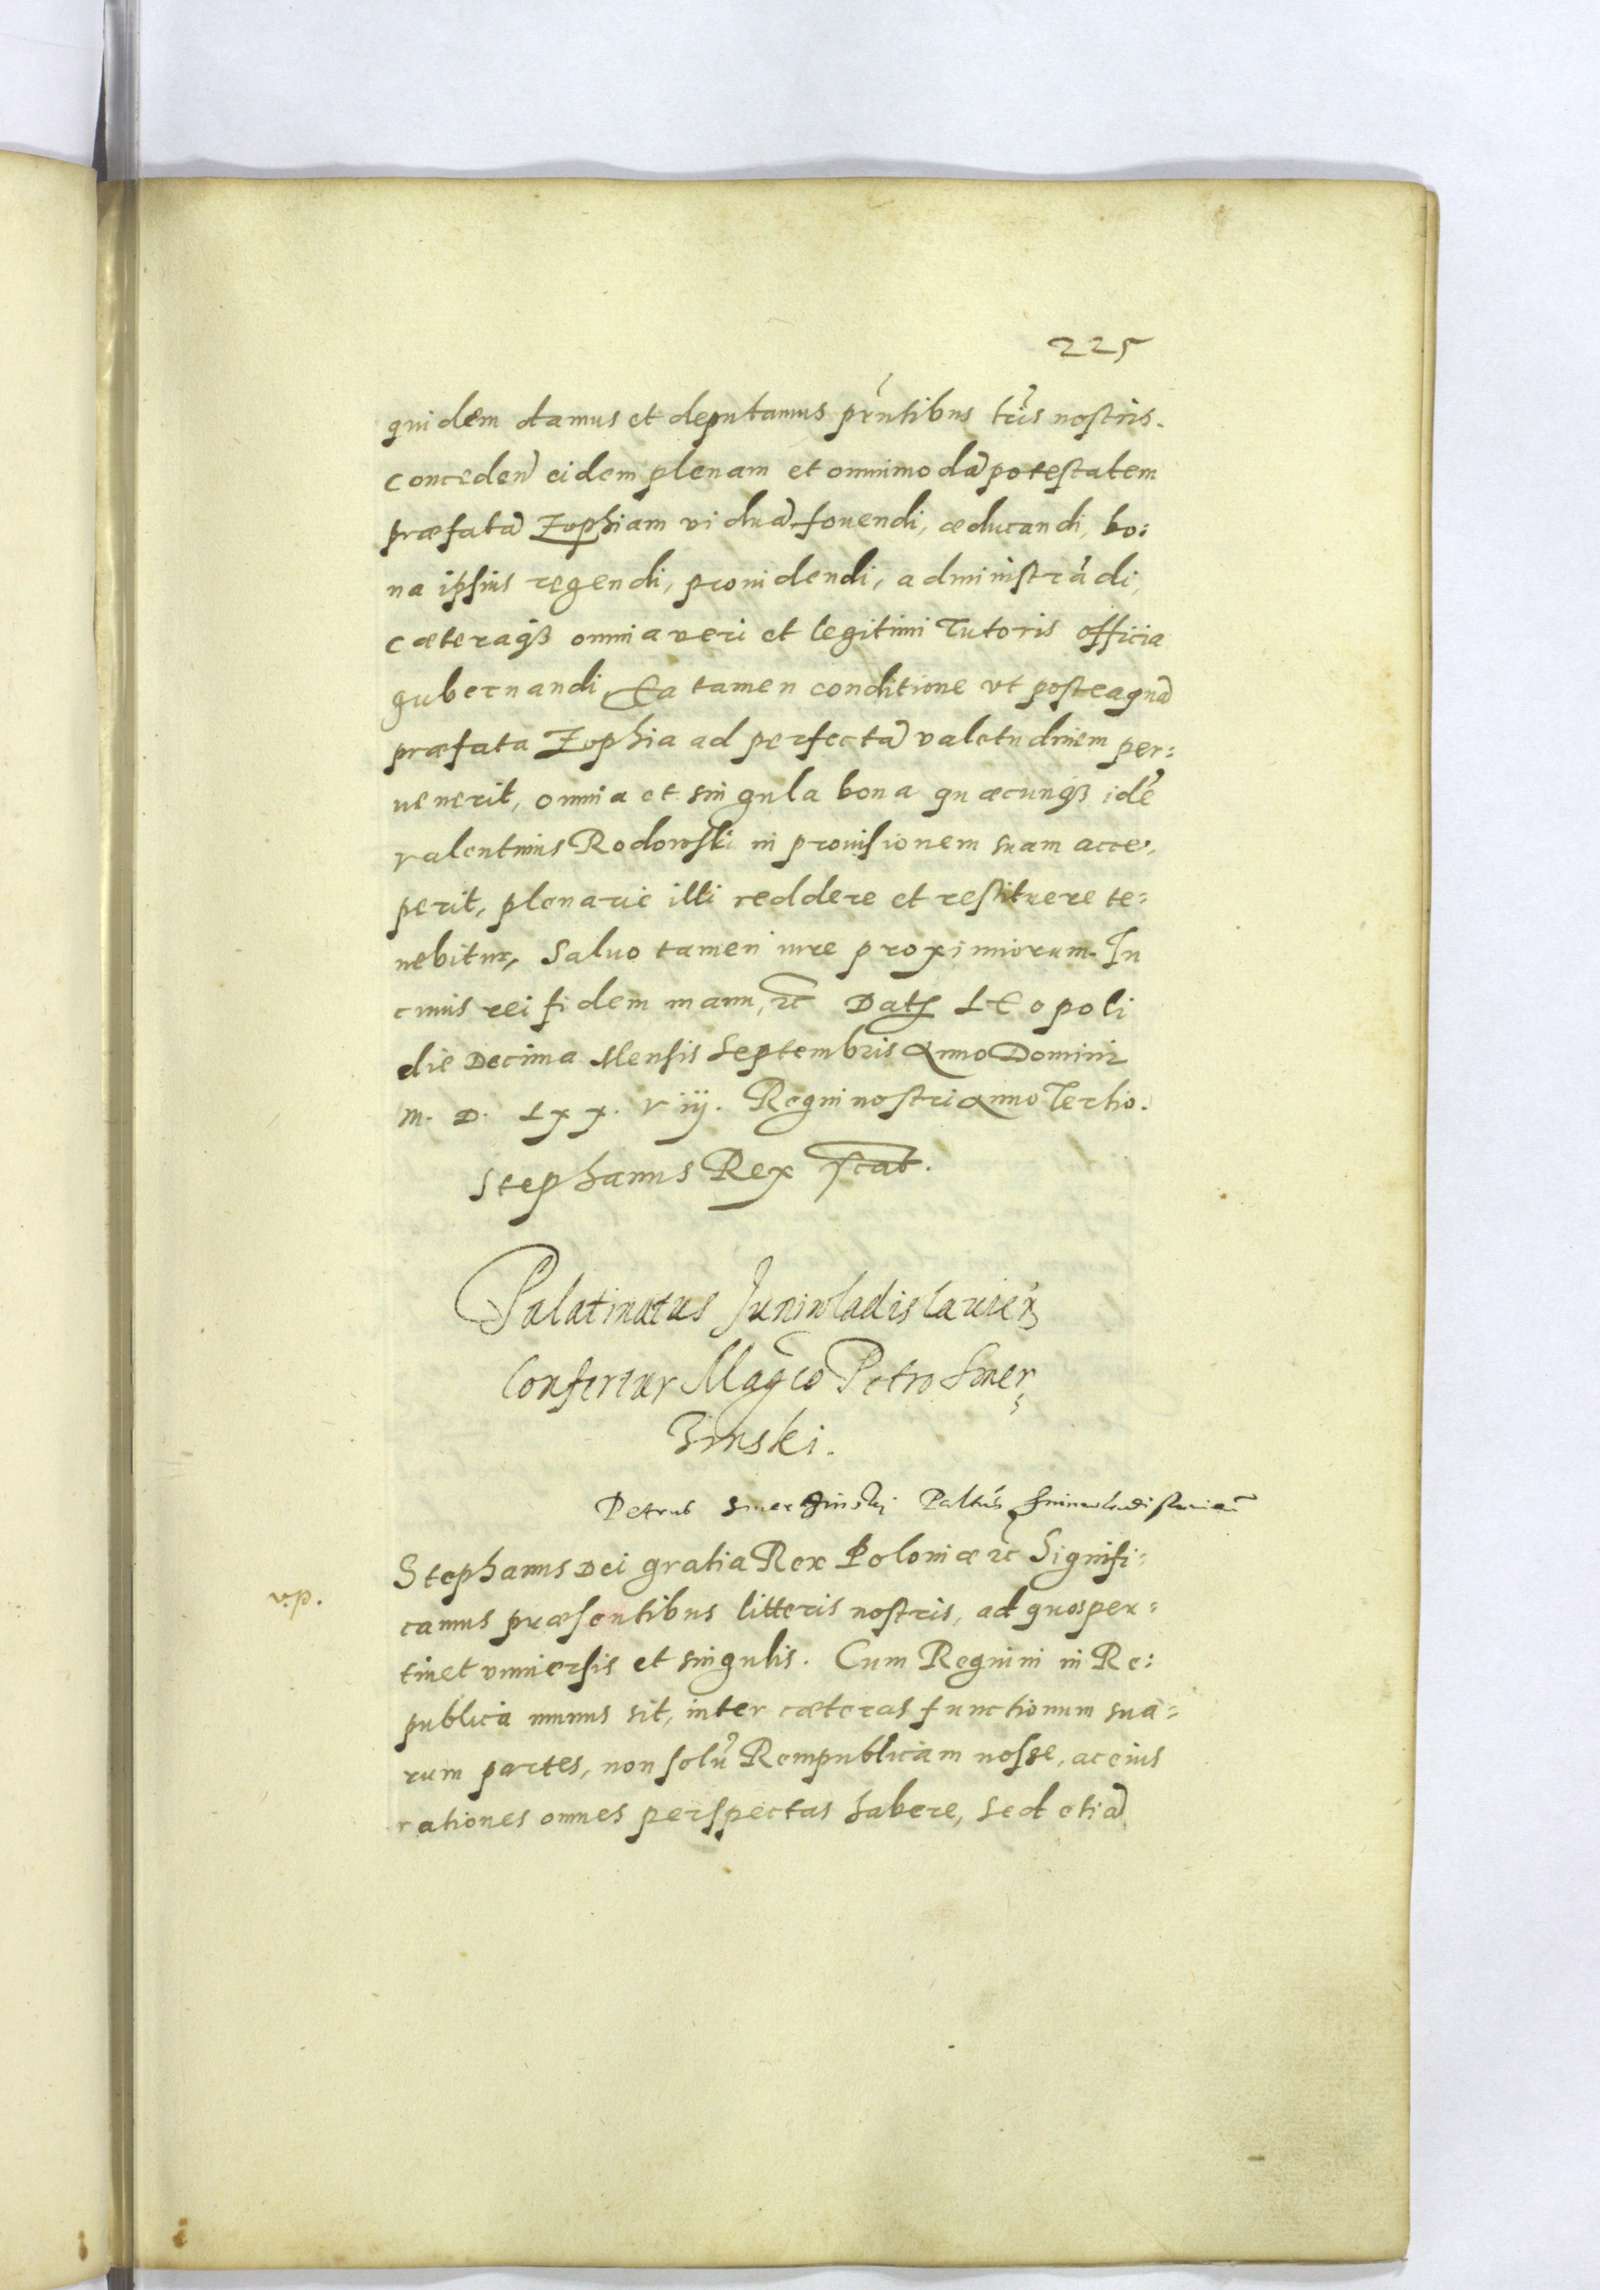 225
quidem damus et deputamus prntibus lris nostris.
conceden eidem plenam et omnimodā potestatem
præfatā Zophiam viduā fouendi, æducandi, bo:
na ipsius regendi, prouidendi, administrādi,
cæteraqȝ omnia veri et legitimi Tutoris officia
gubernandi Ea tamen conditione vt posteaquā
præfata Zophia ad perfectā valetudinem per:
uenerit, omnia et singula bona quæcunqȝ idē
valentinus Rodowski in prouisionem suam acce:
perit, plenarie illi reddere et restituere te:
nebitur, Saluo tamen iure proximiorum. In
cuius rei fidem manu, etc Datȝ LEopoli
die Decima Mensis Septembris Anno Domini
M. D. Lxx. viij. Regni nostri Anno Tertio.
Stephanus Rex sscat.
Palatinatus Juniwladislauień
Confertur Magco Petro Smer
zinski.
Petrus Smerzinskj Paltūs Juniwladislauień
Stephanus Dei gratia Rex Poloniæ etc Signifi:
v.p.
camus præsentibus litteris nostris, ad quos per:
tinet vniuersis et singulis. Cum Regium in Re:
publica munus sit, inter cæteras functionum sua:
rum partes, non solū Rempublicam nosse, ac eius
rationes omnes perspectas habere, sed etiā